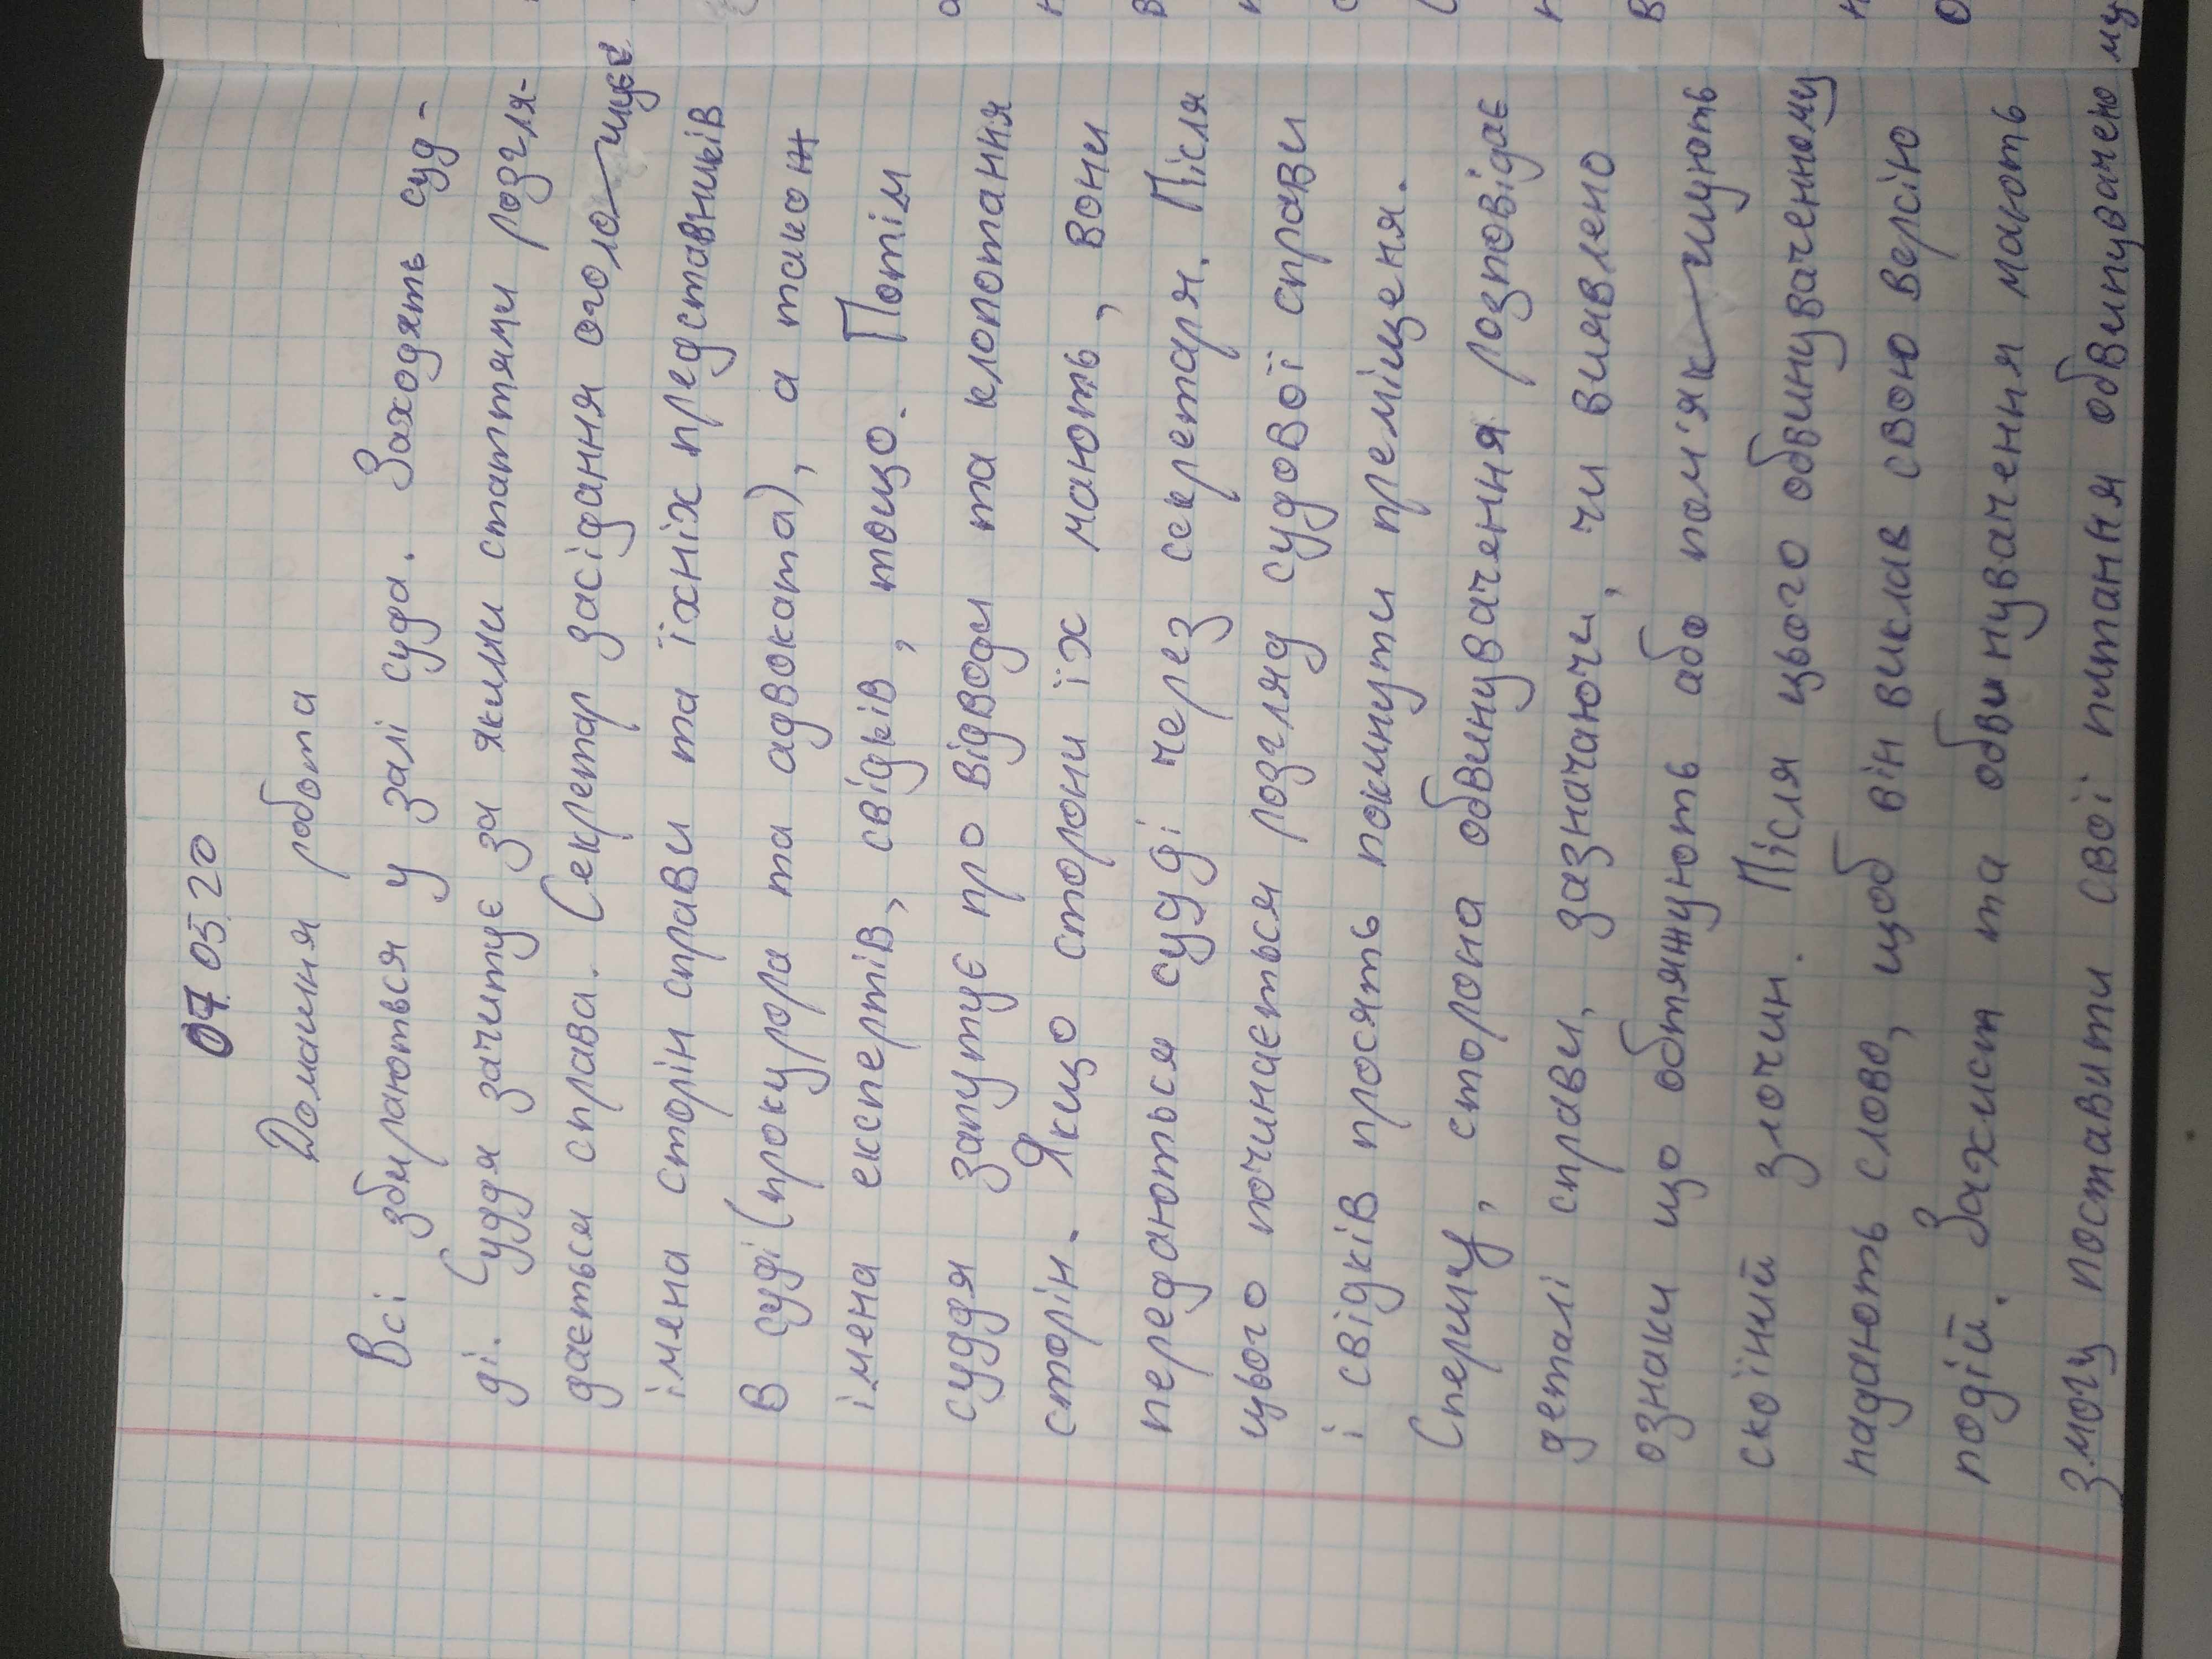 07.05.20
Домашня робота
Всі збираються у залі суда. Заходять суд-
ді. Суддя зачитує за якими статтями розгля-
дається справа. Секретар засідання оголошує
імена сторін справи та їхніх представників
в суді (прокурора та адвоката), а також
імена експертів, свідків, тощо. Потім
суддя запутує про відводи та клопотання
сторін. Якщо сторони їх мають, вони
передаються судді через секретаря. Після
цього починається розгляд судової справи
і свідків просять покинути преміщеня.
Сперщу, сторона обвинувачення розповідає
деталі справи, зазначаючи, чи виявлено
ознаки що обтяжують або пом'якшують
скоїний злочин. Після цього обвинуваченному
надають слово, щоб він виклав свою версію
подій. Захист та обвинувачення мають
змогу поставити свої питання обвинувачено му